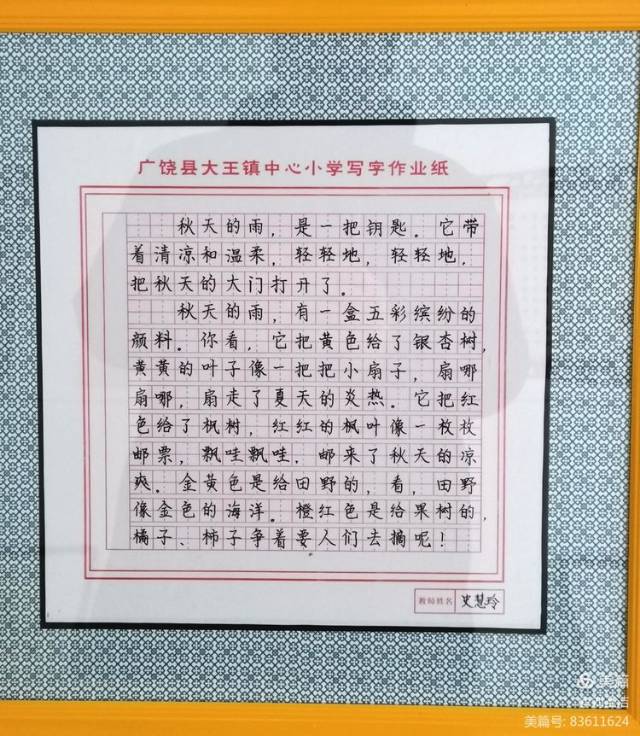 广饶县大王镇中心小学写字作业纸
秋天的雨，是一把钥匙．它带
着清凉和温柔．轻轻地，轻轻地．
把秋天的大门打开了．
秋天的雨，有一盒五彩缤纷的
颜料．你看，它把黄色给了银杏树，
黄黄的叶子像一把把小扇子，扇哪
扇哪，扇走了夏天的炎热．它把红
色给了枫树，红红的枫叶像一枚枚
邮票，飘哇飘哇．邮来了秋天的凉
爽．金黄色是给田野的，看，田野
像金色的海洋．橙红色是给果树的，
橘子、柿子争着要人们去摘呢！
教师姓名 史慧玲
美篇
美篇号: 83611624